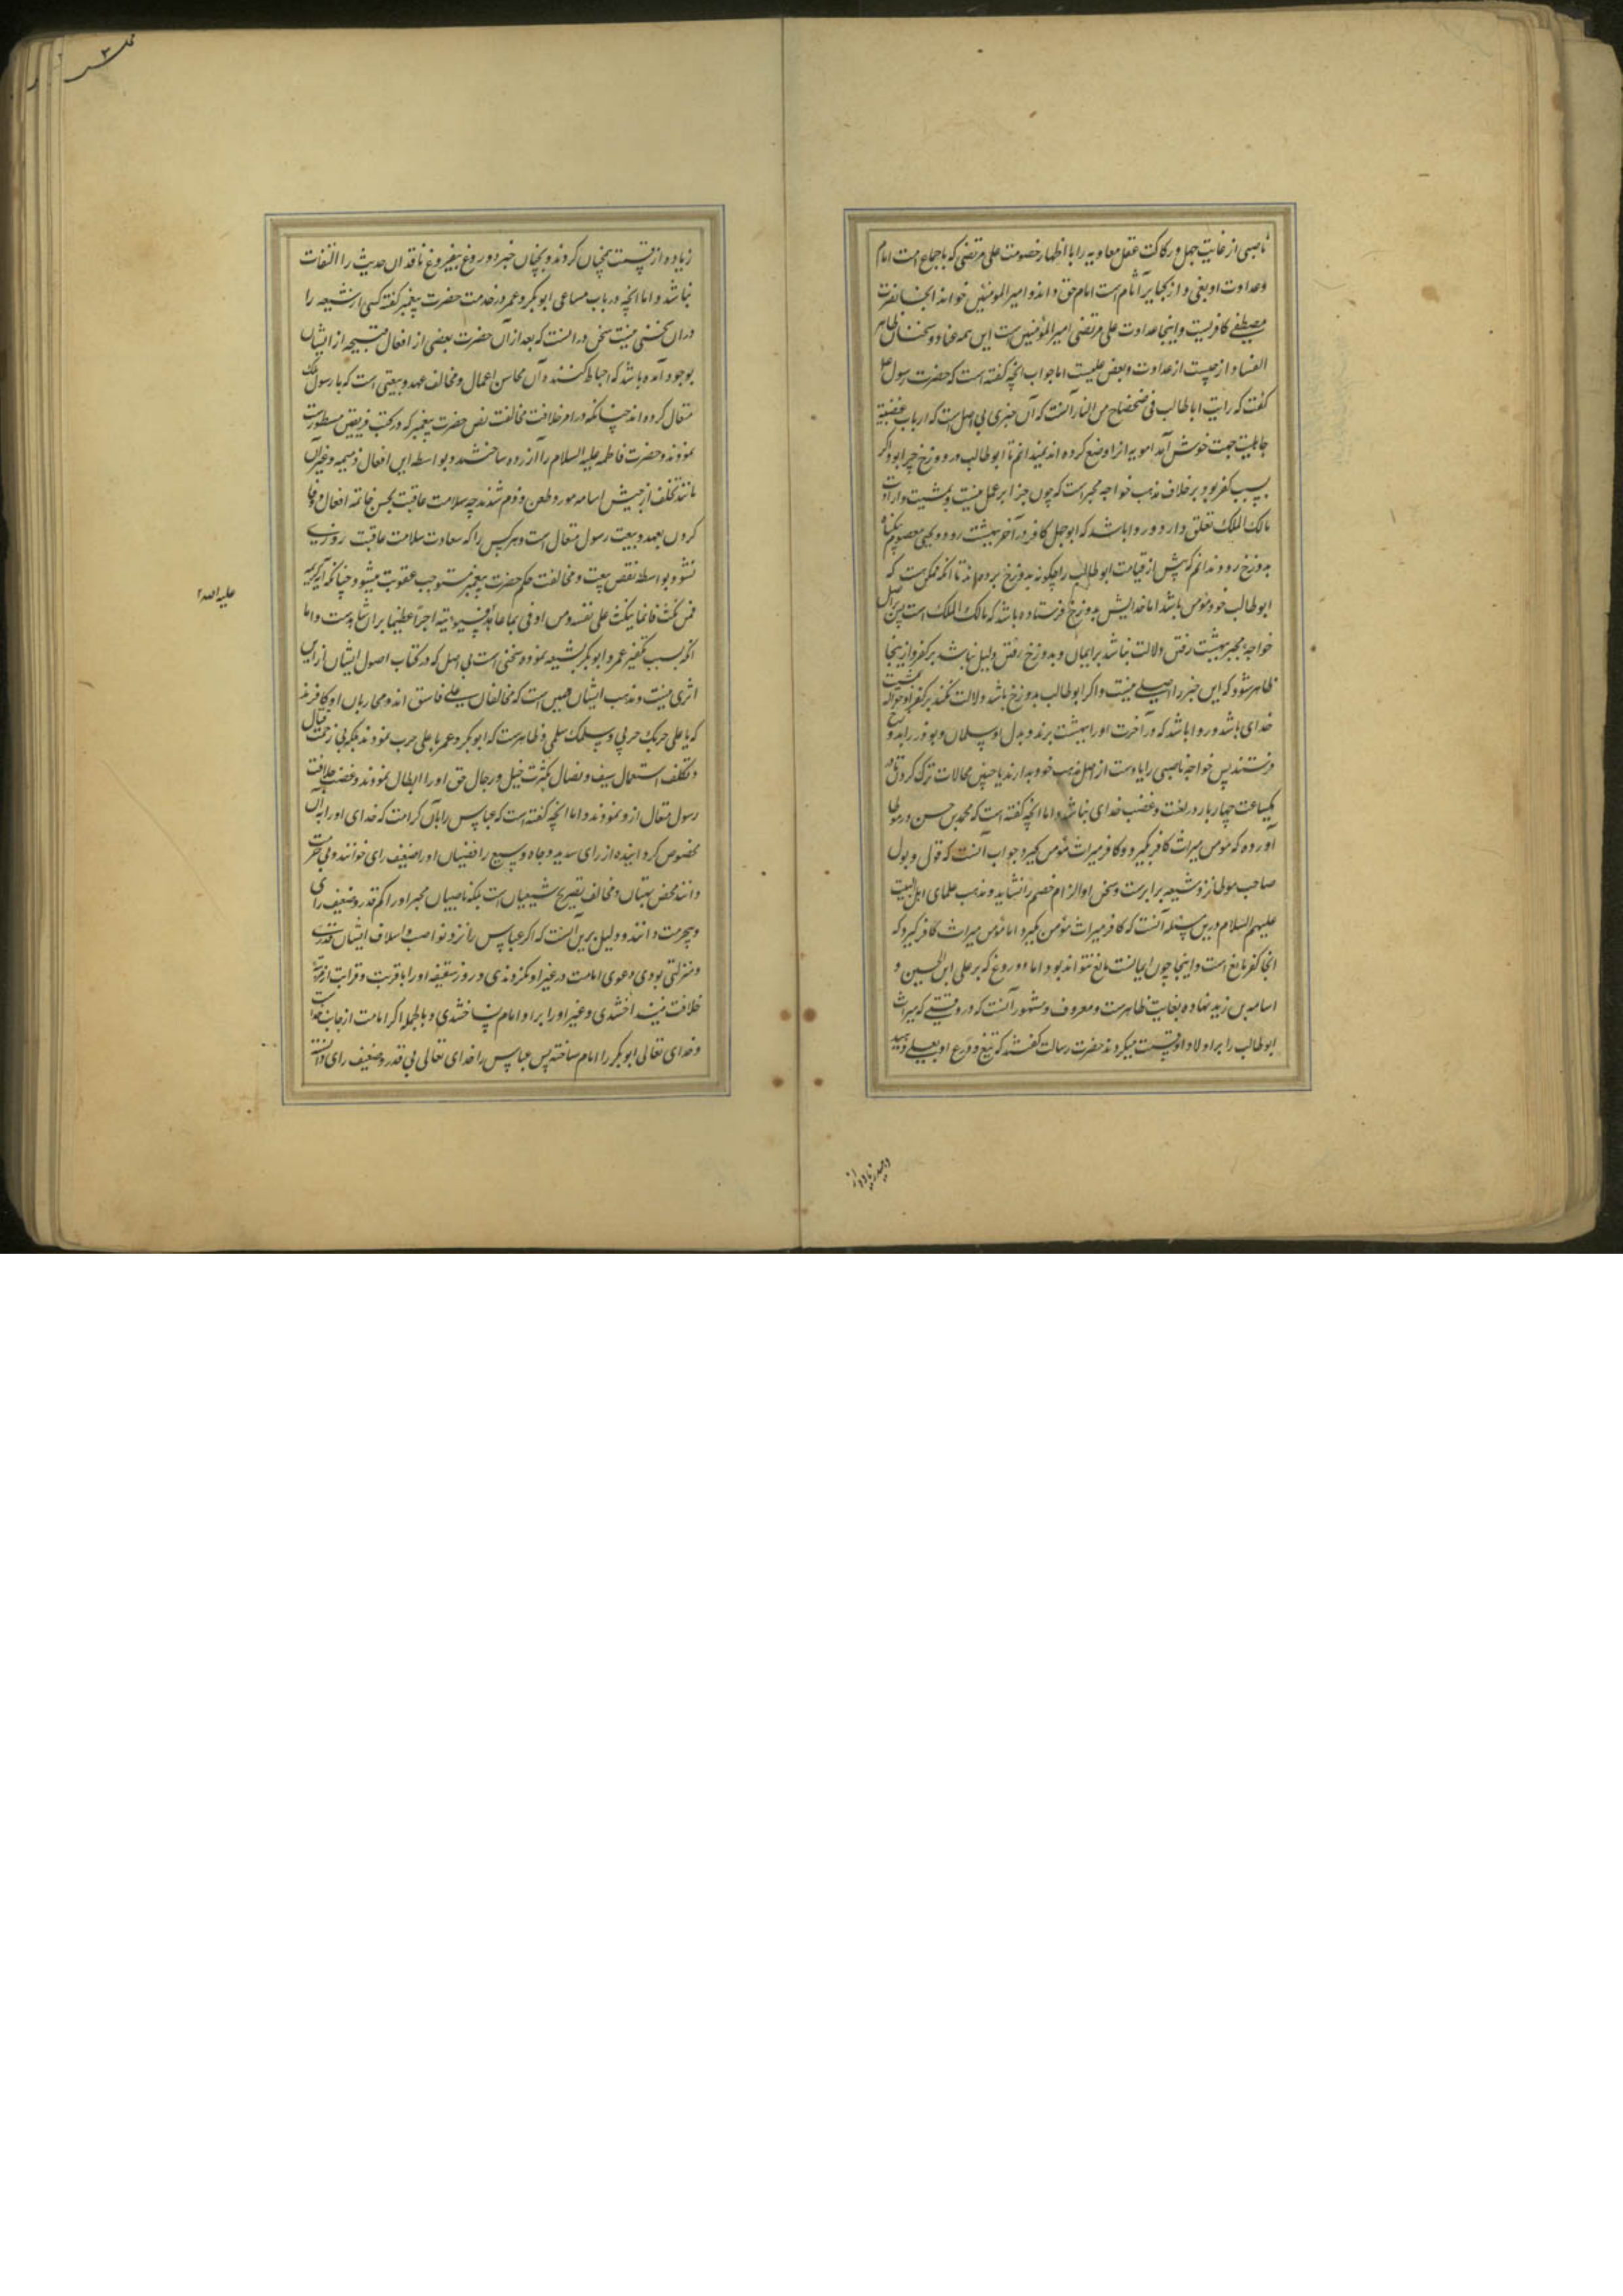 ناصبی از غایت جهل و رکاکت عقل معاویه را با اظهار خصومت علی مرتضی که باجماع امت امام
وعداوت او بغی و از کبایر آثام است امام حق داند و امیر المومنین خواند آنجا نصرت
مصطفی کافریست و اینجا عداوت علی مرتضی امیر المؤمنین ست این همه عناد و سخنان ظاهر
الفساد از چیست از عداوت و بغض علیست اما جواب آنچه گفته است که حضرت رسول
گفت که رایت ابا طالب فی ضحضاح من النار آنست که آن خبری بی اصل است که ارباب عصبیة
جاهلیت جهت خوش آمد امویه انرا وضع کرده اند نمیدانم تا ابو طالب در دوزخ چرا بود اگر
بسبب کفر بود بر خلاف مذهب خواجه مجبر است که چون جزا بر عمل نیست و بمشیت و ارادت
مالک الملک تعلق دارد و روا باشد که ابو جهل کافر در آخر ببهشت رود و یحیی معصوم بیگناه
بدوزخ رود و ندانم که پیش از قیامت ابو طالب را چگونه بدوزخ برده اند تا آنکه ممکن ست که
ابو طالب خود مؤمن باشد اما خدایش بدوزخ فرستاده باشد که مالک الملک است پس بر اصل
خواجه مجبر ببهشت رفتن دلالت نباشد بر ایمان و بدوزخ رفتن دلیل نباشد بر کفر و از اینجا
ظاهر شود که این خبر را اصلی نیست و اگر ابو طالب بدوزخ باشد دلالت نکند بر کفر او حواله بمشیت
خدای باشد و روا باشد که در آخرت او را ببهشت برند و بدل او سلمان و بوذر را بدوزخ
فرستند پس خواجه ناصبی را یا دست از اصل مذهب خود بدارند یا چنین محالات ترک کردن تا در
یکساعت چهار بار در لعنت و غضب خدای نباشد و اما آنچه گفته است که محمد بن حسن در موطا
آورده که مؤمن میراث کافر نگیرد و کافر میراث مؤمن نگیرد جواب آنست که قول و بول
صاحب موطا نزد شیعه برابرست و سخن او الزام خصم را نشاید و مذهب علمای اهل البیت
علیهم السلام درین مسئله آنست که کافر میراث مؤمن نگیرد اما مؤمن میراث کافر گیرد که
آنجا کفر مانع است و اینجا چون ایمانست مانع نتواند بود اما دروغ که بر علی ابن الحسین و
اسامه بن زید نهاده بغایت ظاهرست و معروف و مشهور آنست که در وقتی که میراث
ابو طالب را بر اولاد او قسمت میکردند حضرت رسالت گفتند که تیغ و درع او بعلی دهید
زیاده از قسمت همچنان کردند و بچنان خبر دروغ بیفروغ ناقدان حدیث را التفات
نباشد و اما آنچه در باب مساعی ابو بکر و عمر در خدمت حضرت پیغمبر گفته کسی از شیعه را
در ان بحثی نیست سخن در انست که بعد از آن حضرت بعضی از افعال قبیحه از ایشان
بوجود آمده باشد که احباط کننده آن محاسن اعمال و مخالف عهد و بیعتی است که با رسول ملک
متعال کرده اند چنانکه در امر خلافت مخالفت نص حضرت پیغمبر که در کتب فریقین مسطورست
نمودند و حضرت فاطمه علیه السلام را آزرده ساختند و بواسطه این افعال ذمیمه و غیر آن
مانند تخلف از جیش اسامه مورد طعن و ذم شدند چه سلامت عاقبت بحسن خاتمه افعال و وفا
کردن بعهد و بیعت رسول متعال است و هر کس را که سعادت سلامت عاقبت روزی
نشود بواسطه نقض بیعت و مخالفت حکم حضرت پیغمبر مستوجب عقوبت میشود چنانکه آیه کریمه
فمن نکث فانما ینکث علی نفسه و من اوفی بما عاهد فسیؤتیه اجرا عظیما بر ان شاهدست و اما
علیه الله
آنکه بسبب تکفیر عمر و ابو بکر بشیعه نموده سخنی است بی اصل که در کتاب اصول ایشان از این
اثری نیست و مذهب ایشان همین است که مخالفان علی فاسق اند و محاربان او کافرند
که یا علی حربک حربی و سلمک سلمی و ظاهرست که ابو بکر و عمر با علی حرب ننمودند بلکه بی زحمت قتال
و تکلف استعمال سیف و نصال بکثرت خیل و رجال حق او را ابطال نمودند و غصب خلافت
رسول متعال از و نمودند و اما آنچه گفته است که عباس را بآن کرامت که خدای او را به آن
مخصوص گردانیده از رای سدید و جاه وسیع رافضیان او را ضعیف رای خوانند و بی حرمت
دانند محض بهتان و مخالف تصریح شیعیان است بلکه ناصبیان مجبر او را کم قدر و ضعیف رای
و بیحرمت دانند و دلیل برین آنست که اگر عباس را نزد نواصب و اسلاف ایشان قدری
و منزلتی بودی دعوی امامت در غیر او نکردندی و در روز سقیفه او را با قربت و قرابت از مرتبه
خلافت نینداختندی و غیر او را بر او امام نساختندی و بالجمله اگر امامت از جانب خداست
و خدای تعالی ابو بکر را امام ساخته پس عباس را خدای تعالی بی قدر و ضعیف رای دانسته